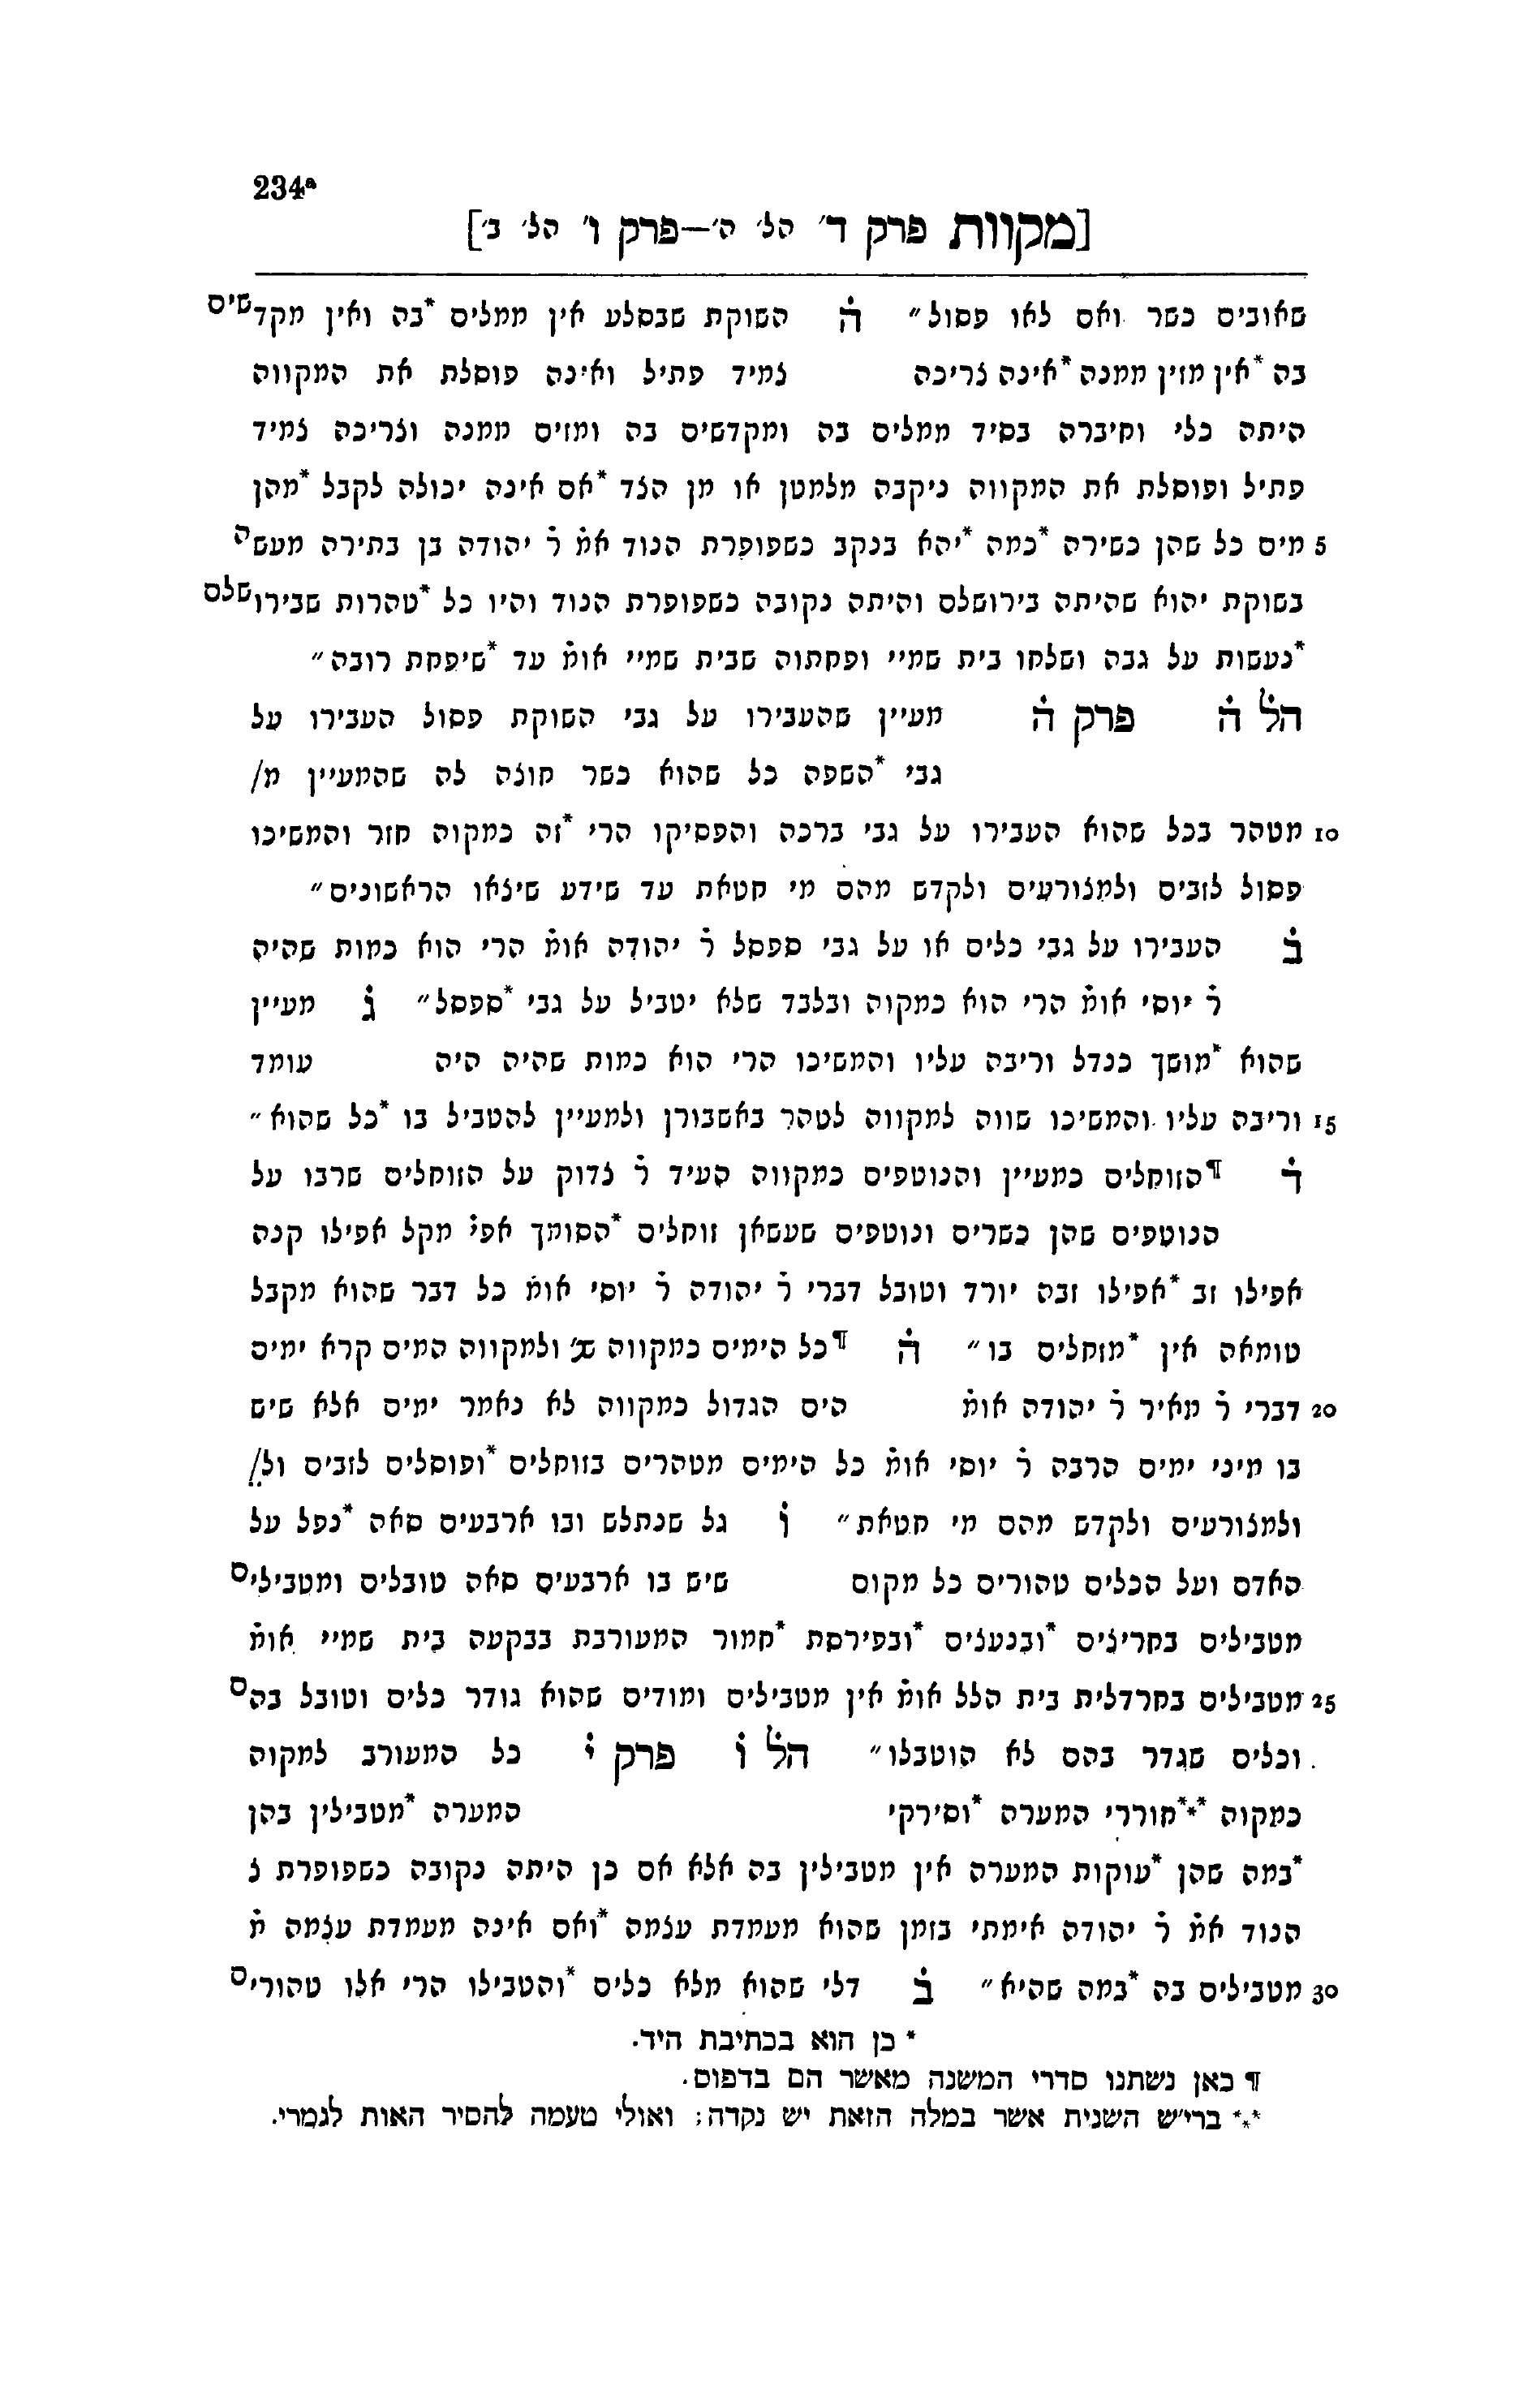 234ᵃ
[מקוות פרק ד׳ הל׳ ה׳—פרק ו׳ הל׳ ב׳]
שאובים כשר ואם לאו פסול״ ה̇ השוקת שבסלע אין ממלים *בה ואין מקדשים
בה *אין מזין ממנה *אינה צריכה צמיד פתיל ואינה פוסלת את המקווה
היתה כלי וחיברה בסיד ממלים בה ומקדשים בה ומזים ממנה וצריכה צמיד
פתיל ופוסלת את המקווה ניקבה מלמטן או מן הצד *אם אינה יכולה לקבל *מהן
5 מים כל שהן כשירה *כמה *יהא בנקב כשפופרת הנוד אמ̇ ר̇ יהודה בן בתירה מעשה
בשוקת יהוא שהיתה בירושלם והיתה נקובה כשפופרת הנוד והיו כל *טהרות שבירושלם
*נעשות על גבה ושלחו בית שמיי ופחתוה שבית שמיי אומ̇ עד *שיפחת רובה״
הל̇ ה̇ פרק ה̇ מעיין שהעבירו על גבי השוקת פסול העבירו על
גבי *השפה כל שהוא כשר חוצה לה שהמעיין מ/
10 מטהר בכל שהוא העבירו על גבי ברכה והפסיקו הרי *זה כמקוה חזר והמשיכו
פסול לזבים ולמצורעים ולקדש מהם מי חטאת עד שידע שיצאו הראשונים״
ב̇ העבירו על גבי כלים או על גבי ספסל ר̇ יהודה אומ̇ הרי הוא כמות שהיה
ר̇ יוסי אומ̇ הרי הוא כמקוה ובלבד שלא יטביל על גבי *ספסל״ ג̇ מעיין
שהוא *מושך כנדל וריבה עליו והמשיכו הרי הוא כמות שהיה היה עומד
15 וריבה עליו והמשיכו שווה למקווה לטהר באשבורן ולמעיין להטביל בו *כל שהוא״
ד̇ ¶הזוחלים כמעיין והנוטפים כמקווה העיד ר̇ צדוק על הזוחלים שרבו על
הנוטפים שהן כשרים ונוטפים שעשאן זוחלים *הסומך אפי̇ מקל אפילו קנה
אפילו זב *אפילו זבה יורד וטובל דברי ר̇ יהודה ר̇ יוסי אומ̇ כל דבר שהוא מקבל
טומאה אין *מזחלים בו״ ה̇ ¶כל הימים כמקווה שנ׳ ולמקווה המים קרא ימים
20 דברי ר̇ מאיר ר̇ יהודה אומ̇ הים הגדול כמקווה לא נאמר ימים אלא שיש
בו מיני ימים הרבה ר̇ יוסי אומ̇ כל הימים מטהרים בזוחלים *ופוסלים לזבים ול/
ולמצורעים ולקדש מהם מי חטאת״ ו̇ גל שנתלש ובו ארבעים סאה *נפל על
האדם ועל הכלים טהורים כל מקום שיש בו ארבעים סאה טובלים ומטבילים
מטבילים בחריצים *ובנעצים *ובפירסת *חמור המעורבת בבקעה בית שמיי אומ̇
25 מטבילים בחרדלית בית הלל אומ̇ אין מטבילים ומודים שהוא גודר כלים וטובל בהם
וכלים שגדר בהם לא הוטבלו״ הל̇ ו̇ פרק י̇ כל המעורב למקוה
כמקוה *⁎*חוררי המערה *וסירקי המערה *מטבילין בהן
*במה שהן *עוקות המערה אין מטבילין בה אלא אם כן היתה נקובה כשפופרת נ
הנוד אמ̇ ר̇ יהודה אימתי בזמן שהוא מעמדת עצמה *ואם אינה מעמדת עצמה מ̇
30 מטבילים בה *במה שהיא״ ב̇ דלי שהוא מלא כלים *והטבילו הרי אלו טהורים
* כן הוא בכתיבת היד.
¶ כאן נשתנו סדרי המשנה מאשר הם בדפוס.
*⁎* ברי״ש השנית אשר במלה הזאת יש נקדה; ואולי טעמה להסיר האות לגמרי.